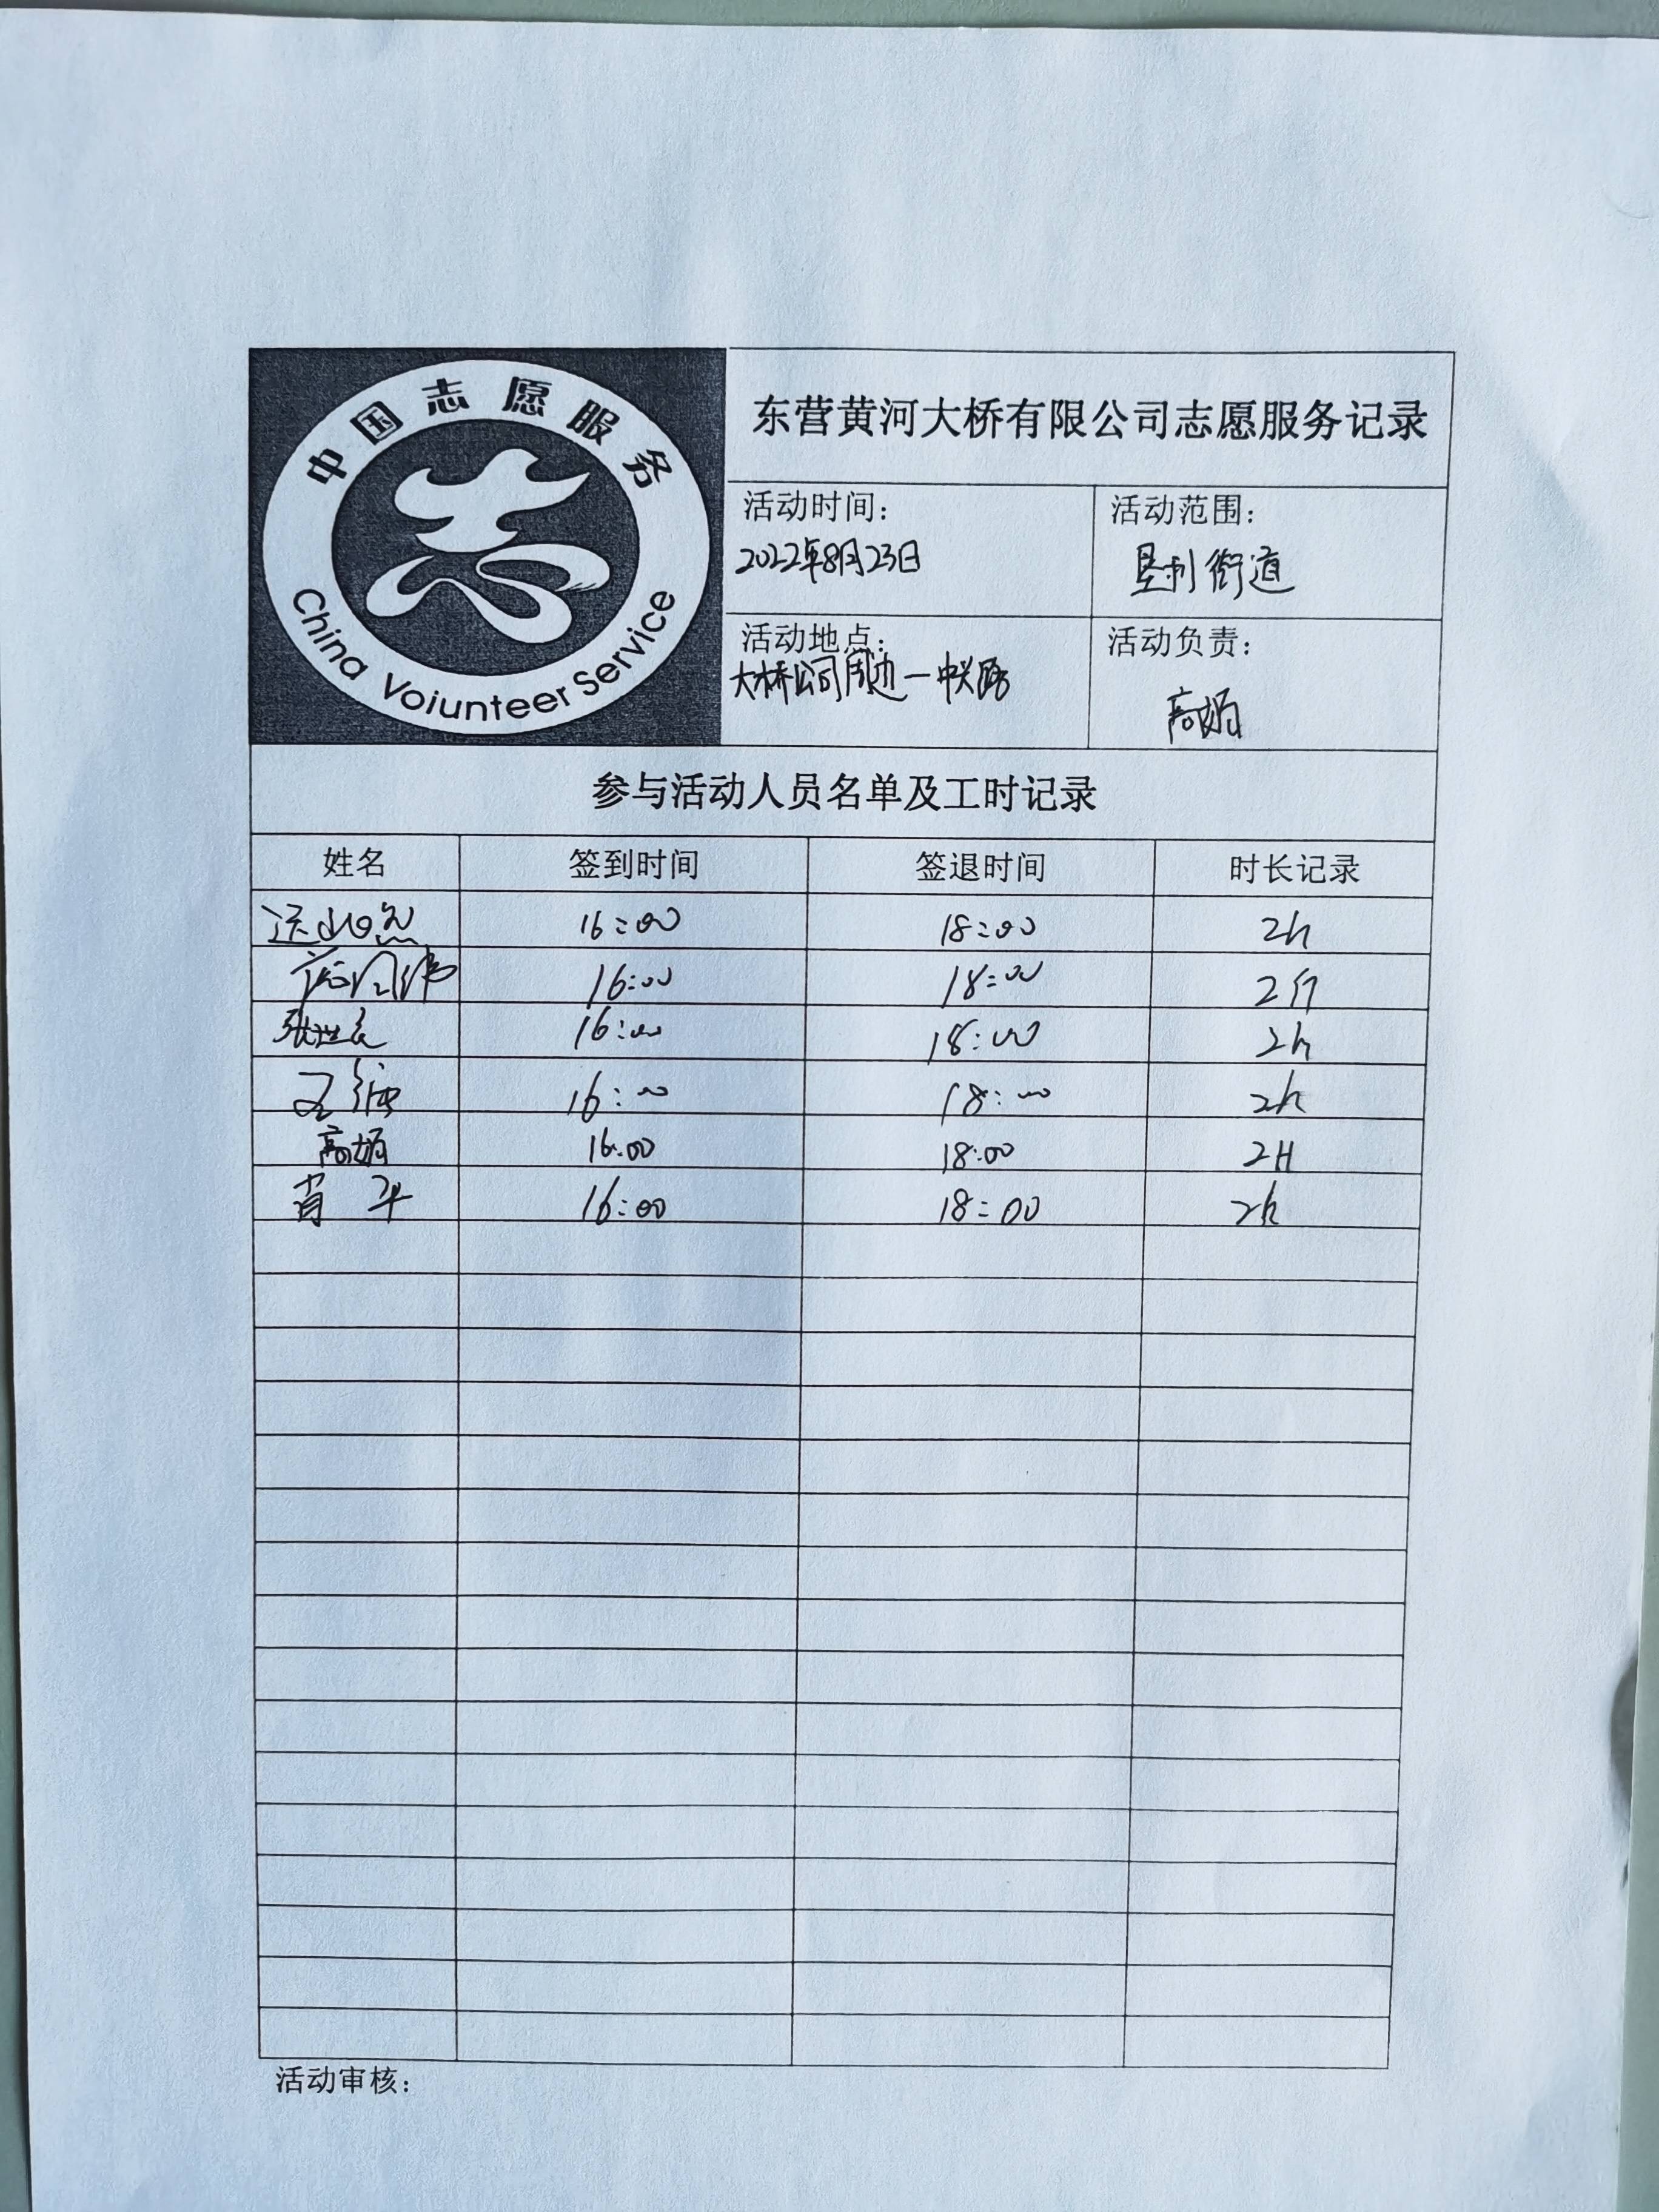 中国志愿服务
China Voiunteer Service
东营黄河大桥有限公司志愿服务记录
活动时间：
2022年8月23日
活动范围：
垦利街道
活动地点：
大桥公司周边一中兴路
活动负责：
高娟
参与活动人员名单及工时记录
姓名 签到时间 签退时间 时长记录
16:00 18:00 2h
16:00 18:00 2h
16:00 18:00 2h
16:00 18:00 2h
高娟 16:00 18:00 2H
肖平 16:00 18:00 2h
活动审核：